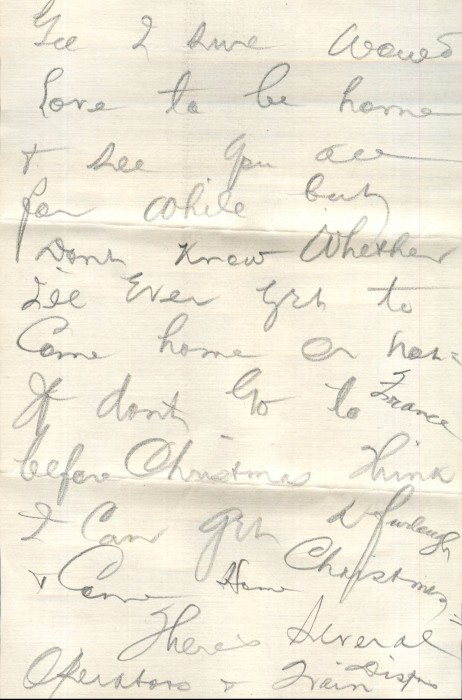 Gee I sure Would
Love to be home
& see you all
for while but
Dont Know Whether
I'll Ever get to
Come home or not=
If dont Go to France
before Christmas think
I Can get a furlough
& Come Home Christmas=
There's Several
Operators & Train Disprs